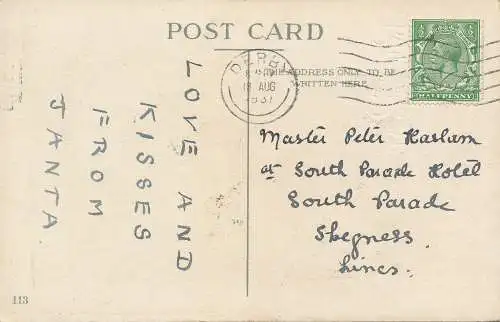 POST CARD
THE ADDRESS ONLY TO BE
WRITTEN HERE.
DERBY
AUG
HALFPENNY
LOVE AND
KISSES
FROM
JANTA
Master Peter Haslam
at South Parade Hotel
South Parade
Skegness
Lincs.
113